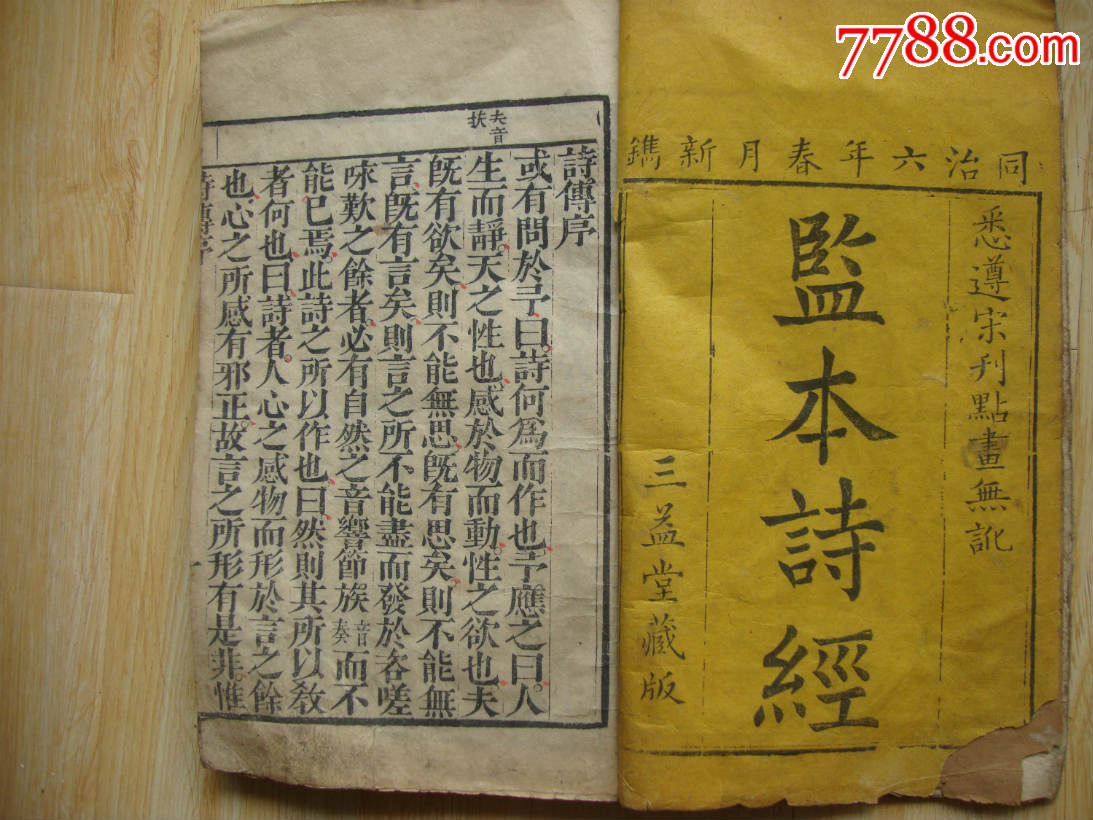 7788.com
同治六年春月新鐫
悉遵宋刊點畫無訛
監本詩經
三益堂藏版
夫音
扶
詩傳序
或有問於予曰詩何爲而作也予應之曰人
生而靜天之性也感於物而動性之欲也夫
旣有欲矣則不能無思旣有思矣則不能無
言旣有言矣則言之所不能盡而發於咨嗟
咏歎之餘者必有自然之音響節族音奏而不
能已焉此詩之所以作也曰然則其所以敎
者何也曰詩者人心之感物而形於言之餘
也心之所感有邪正故言之所形有是非惟
詩傳序
一